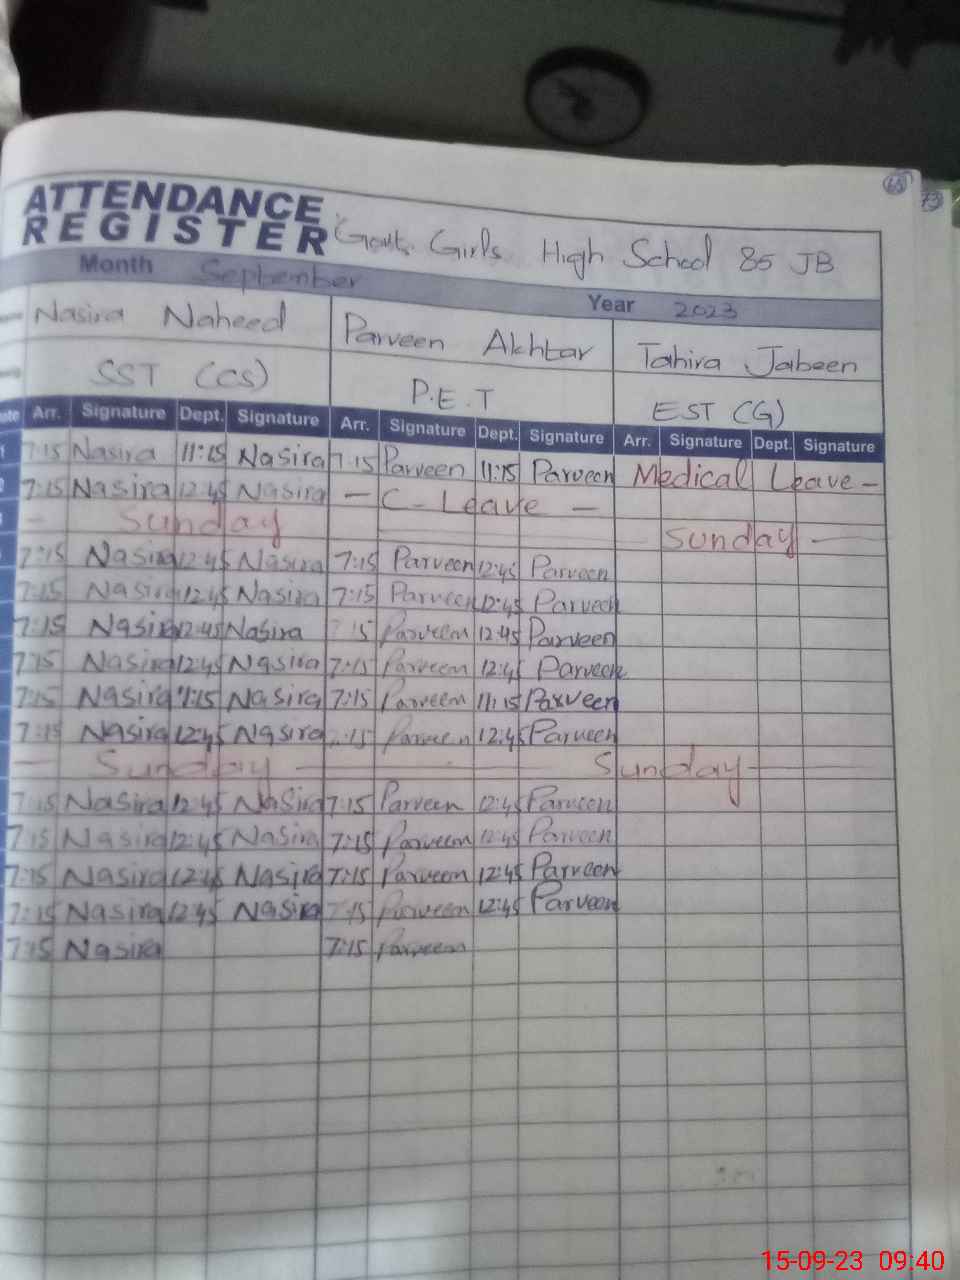 65 73
ATTENDANCE
REGISTER Govt. Girls High School 85 JB
Month September Year 2023
Nasira Naheed Parveen Akhtar Tahira Jabeen
SST (CS) P.E.T EST (G)
Arr. Signature Dept. Signature Arr. Signature Dept. Signature Arr. Signature Dept. Signature
1 7:15 Nasira 11:15 Nasira 7:15 Parveen 11:15 Parveen Medical Leave -
2 7:15 Nasira 12:45 Nasira - C-Leave -
- Sunday Sunday -
7:15 Nasira 12:45 Nasira 7:15 Parveen 12:45 Parveen
7:15 Nasira 12:45 Nasira 7:15 Parveen 12:45 Parveen
7:15 Nasira 12:45 Nasira 7:15 Parveen 12:45 Parveen
7:15 Nasira 12:45 Nasira 7:15 Parveen 12:45 Parveen
7:15 Nasira 11:15 Nasira 7:15 Parveen 11:15 Parveen
7:15 Nasira 12:45 Nasira 7:15 Parveen 12:45 Parveen
- Sunday - Sunday -
7:15 Nasira 12:45 Nasira 7:15 Parveen 12:45 Parveen
7:15 Nasira 12:45 Nasira 7:15 Parveen 12:45 Parveen
7:15 Nasira 12:45 Nasira 7:15 Parveen 12:45 Parveen
7:15 Nasira 12:45 Nasira 7:15 Parveen 12:45 Parveen
7:15 Nasira 7:15 Parveen
15-09-23 09:40